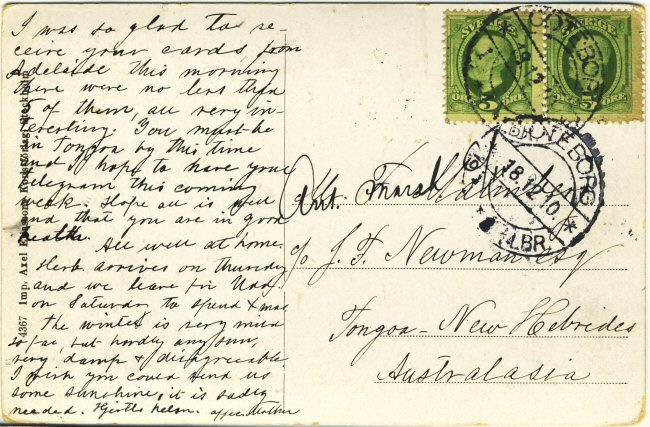 I was so glad to re-
ceive your cards from
Adelaide this morning
there were no less than
5 of them, all very in-
eresting. You must be
in Tongoa by this time
and I hope to have your
telegram this coming
week. Hope all is well
and that you are in good
health.
All well at home.
Herb arrives on Thursday
and we leave for
on Saturday to spend Xmas
The winter is very mild
so far, but hardly any sun,
very damp & disagreeable
I wish you could send us
some sunshine, it is sadly
needed.
Mother
4367 Imp. Axel Eliassons Konstförlag, Stockholm
SVERIGE
5 ÖRE
SVERIGE
5 ÖRE
GÖTEBORG
GÖTEBORG
18.12.10.
LBR.
c/o J. F. Newman esq
Tongoa - New Hebrides
Australasia